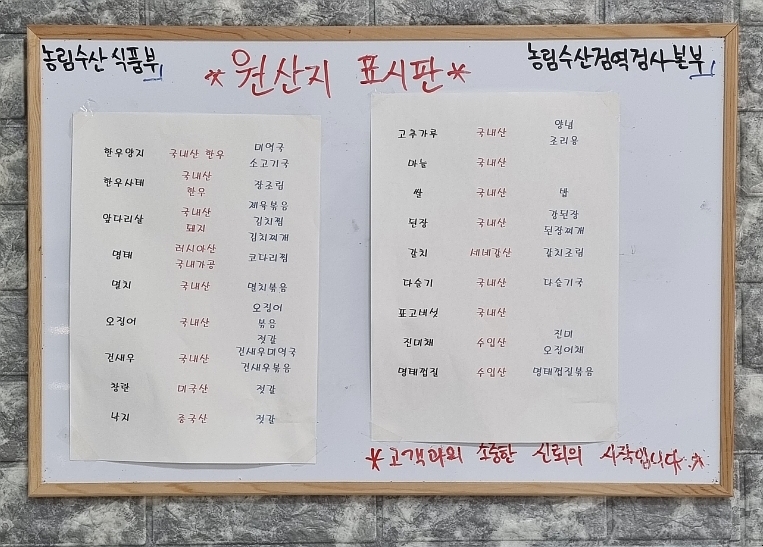 농림수산식품부
*원산지 표시판*
농림수산검역검사본부
한우양지 국내산 한우 미역국 소고기국
한우사태 국내산 한우 장조림
앞다리살 국내산 돼지 제육볶음 김치찜 김치찌개
명태 러시아산 국내가공 코다리찜
멸치 국내산 멸치볶음
오징어 국내산 오징어 볶음 젓갈
건새우 국내산 건새우미역국 건새우볶음
창란 미국산 젓갈
낙지 중국산 젓갈
고추가루 국내산 양념 조리용
마늘 국내산
쌀 국내산 밥
된장 국내산 강된장 된장찌개
갈치 세네갈산 갈치조림
다슬기 국내산 다슬기국
표고버섯 국내산
진미채 수입산 진미 오징어채
명태껍질 수입산 명태껍질볶음
*고객과의 소중한 신뢰의 시작입니다.*